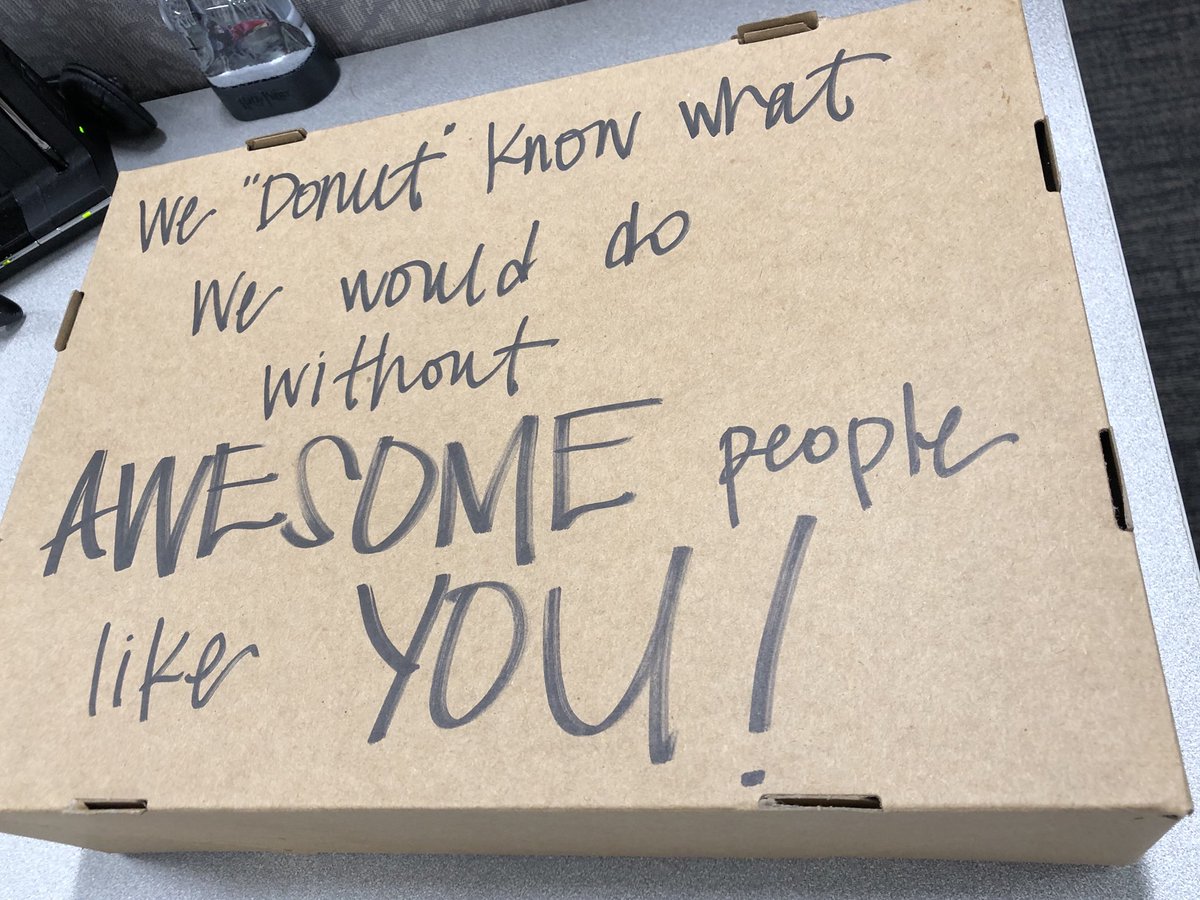 We "Donut" Know what
We would do
without
AWESOME people
like YOU!